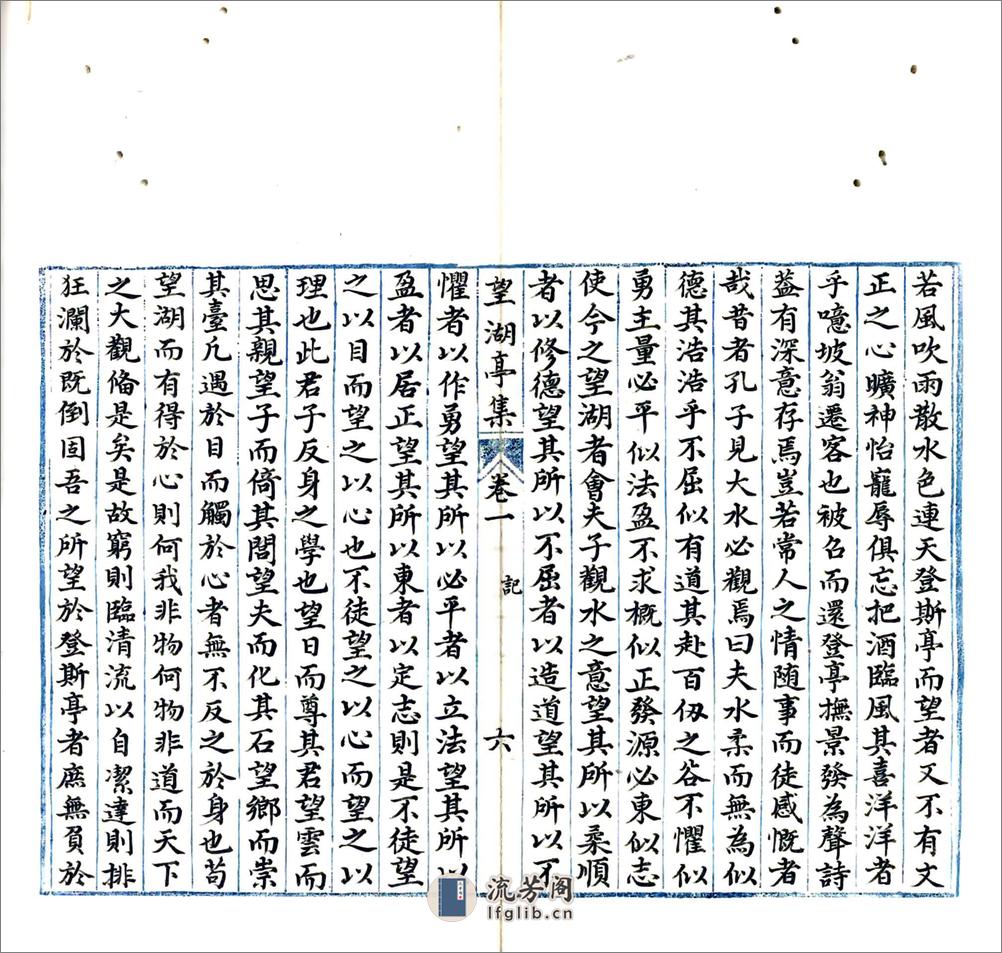 若風吹雨散水色連天登斯亭而望者又不有文
正之心曠神怡寵辱俱忘把酒臨風其喜洋洋者
乎噫坡翁遷客也被召而還登亭撫景發為聲詩
葢有深意存焉豈若常人之情随事而徒感慨者
哉昔者孔子見大水必觀焉曰夫水柔而無為似
德其浩浩乎不屈似有道其赴百仭之谷不懼似
勇主量必平似法盈不求概似正發源必東似志
使今之望湖者會夫子觀水之意望其所以柔順
者以修德望其所以不屈者以造道望其所以不
望湖亭集 卷一 記 六
懼者以作勇望其所以必平者以立法望其所以
盈者以居正望其所以東者以定志則是不徒望
之以目而望之以心也不徒望之以心而望之以
理也此君子反身之學也望日而尊其君望雲而
思其親望子而倚其閭望夫而化其石望鄉而崇
其臺凡遇於目而觸於心者無不反之於身也苟
望湖而有得於心則何我非物何物非道而天下
之大觀俻是矣是故窮則臨清流以自潔達則排
狂瀾於既倒固吾之所望於登斯亭者庶無負於
流芳阁
lfglib.cn